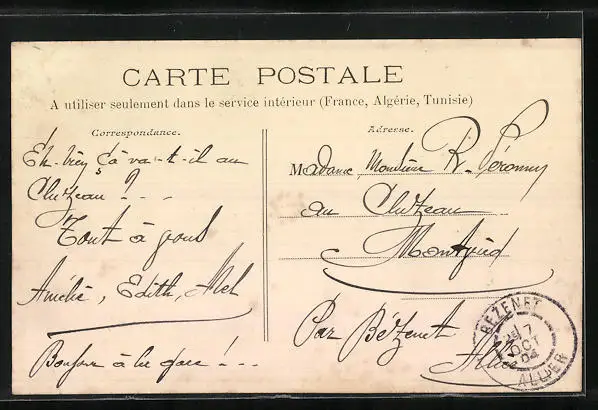 CARTE POSTALE
A utiliser seulement dans le service intérieur (France, Algérie, Tunisie)
Correspondance.
Eh-bien, ça-va-t-il au
Cluzeau ? . . .
Tout à vous
Amélie, Edith, Mel
Bonjour à la gare ! . . .
Adresse.
Madame, Monsieur R. Péronny
au Cluzeau
Montjied
Par Bézenet
Allier
BEZENET
17
OCT
04
ALLIER